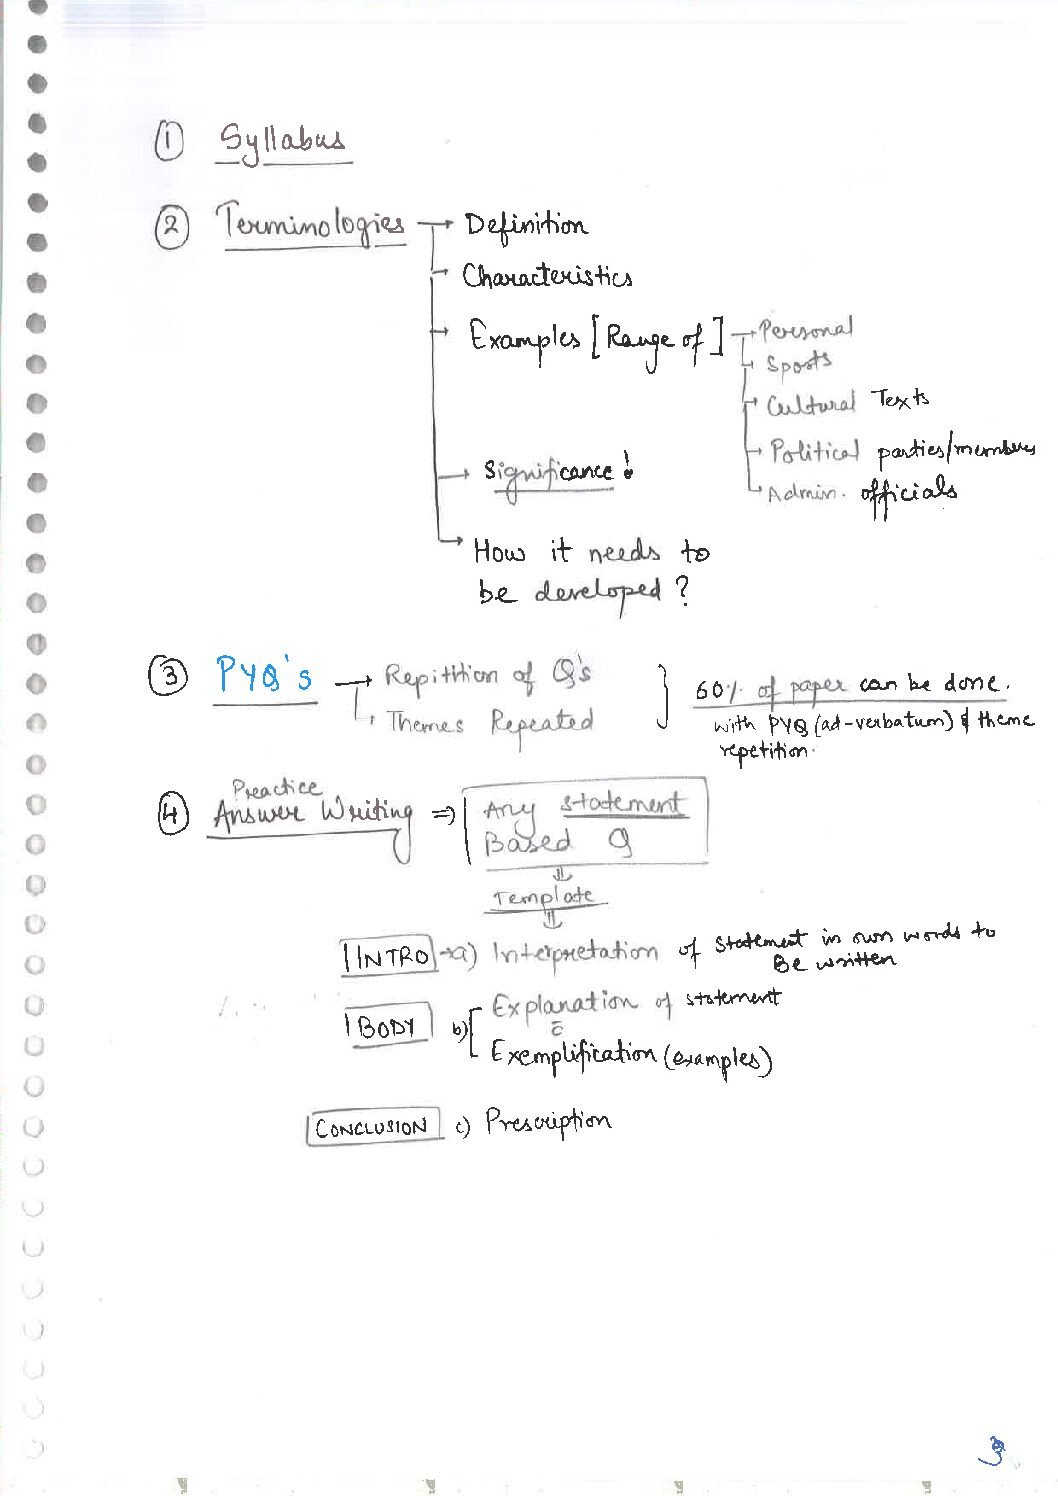 ① Syllabus
② Terminologies → Definition
→ Characteristics
→ Examples [Range of] → Personal
→ Sports
→ Cultural Texts
→ Political parties/members
→ Admin. officials
→ Significance!
→ How it needs to
be developed?
③ PYQ's → Repitition of Q's
→ Themes Repeated
60% of paper can be done.
with PYQ (ad-verbatum) & theme
repetition.
④ Practice
Answer Writing ⇒ Any statement
Based Q
Template
INTRO → a) Interpretation of statement in own words to
Be written
BODY b) Explanation of statement
c̄
Exemplification (examples)
CONCLUSION c) Prescription
3